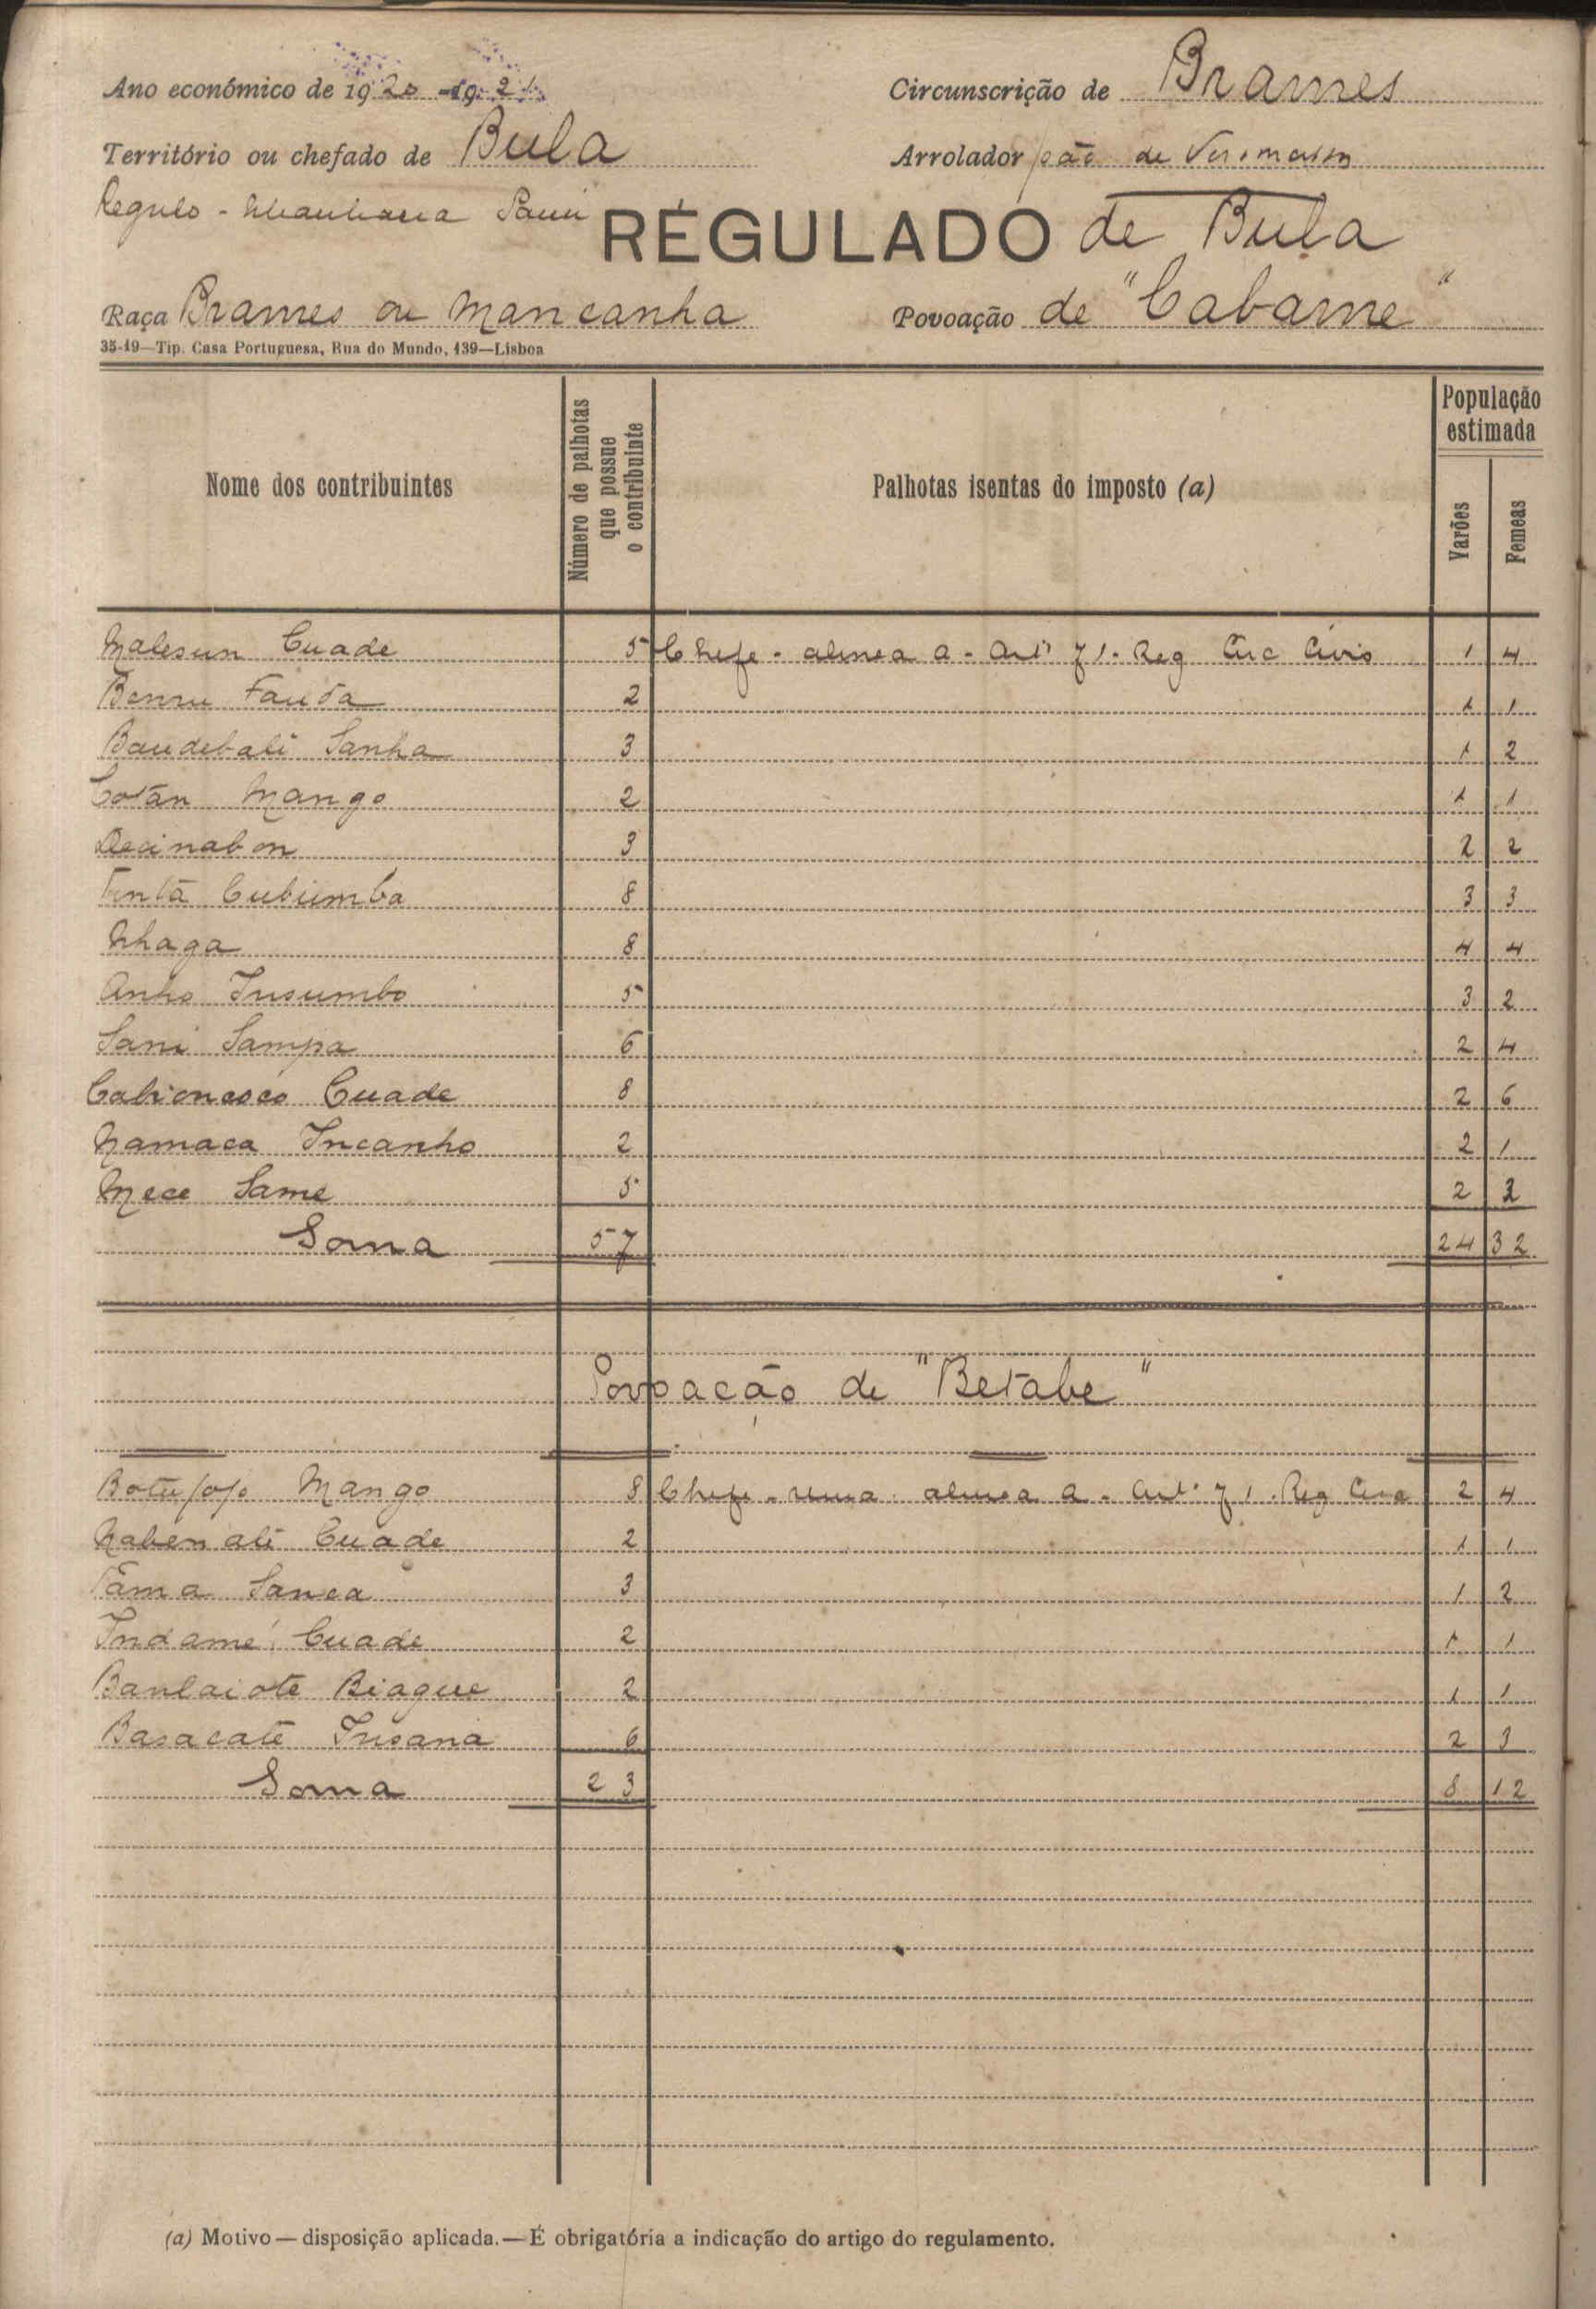 Ano económico de 1920-1921
Circunscrição de Brames
Território ou chefado de Bula
Arrolador João de
Regulo -
RÉGULADO de Bula
Raça Brames ou Mancanha
Povoação de "Cabame"
35-19—Tip. Casa Portuguesa, Rua do Mundo, 139—Lisboa
Nome dos contribuintes
Número de palhotas que possue o contribuinte
Palhotas isentas do imposto (a)
População estimada
Varões
Femeas
Malesun Cuade 5 Chefe - alinea a - Artº 71 - Reg Circ Civis 1 4
2 1 1
Baudebali Sanha 3 1 2
Cotân Mango 2 1 1
3 2 2
Cubiumba 8 3 3
Nhaga 8 4 4
Anho Insumbo 5 3 2
Sani Sampa 6 2 4
Cuade 8 2 6
Namaca Incanho 2 2 1
Mece Same 5 2 2
Soma 57 24 32
Povoação de "Betabe"
Mango 8 Chefe - uma alinea a - Artº 71. Reg Circ 2 4
Nabenali Cuade 2 1 1
Fama Sanca 3 1 2
Indamé Cuade 2 1 1
Banlaiote Biague 2 1 1
Basacaté Insana 6 2 3
Soma 23 8 12
(a) Motivo — disposição aplicada. — É obrigatória a indicação do artigo do regulamento.